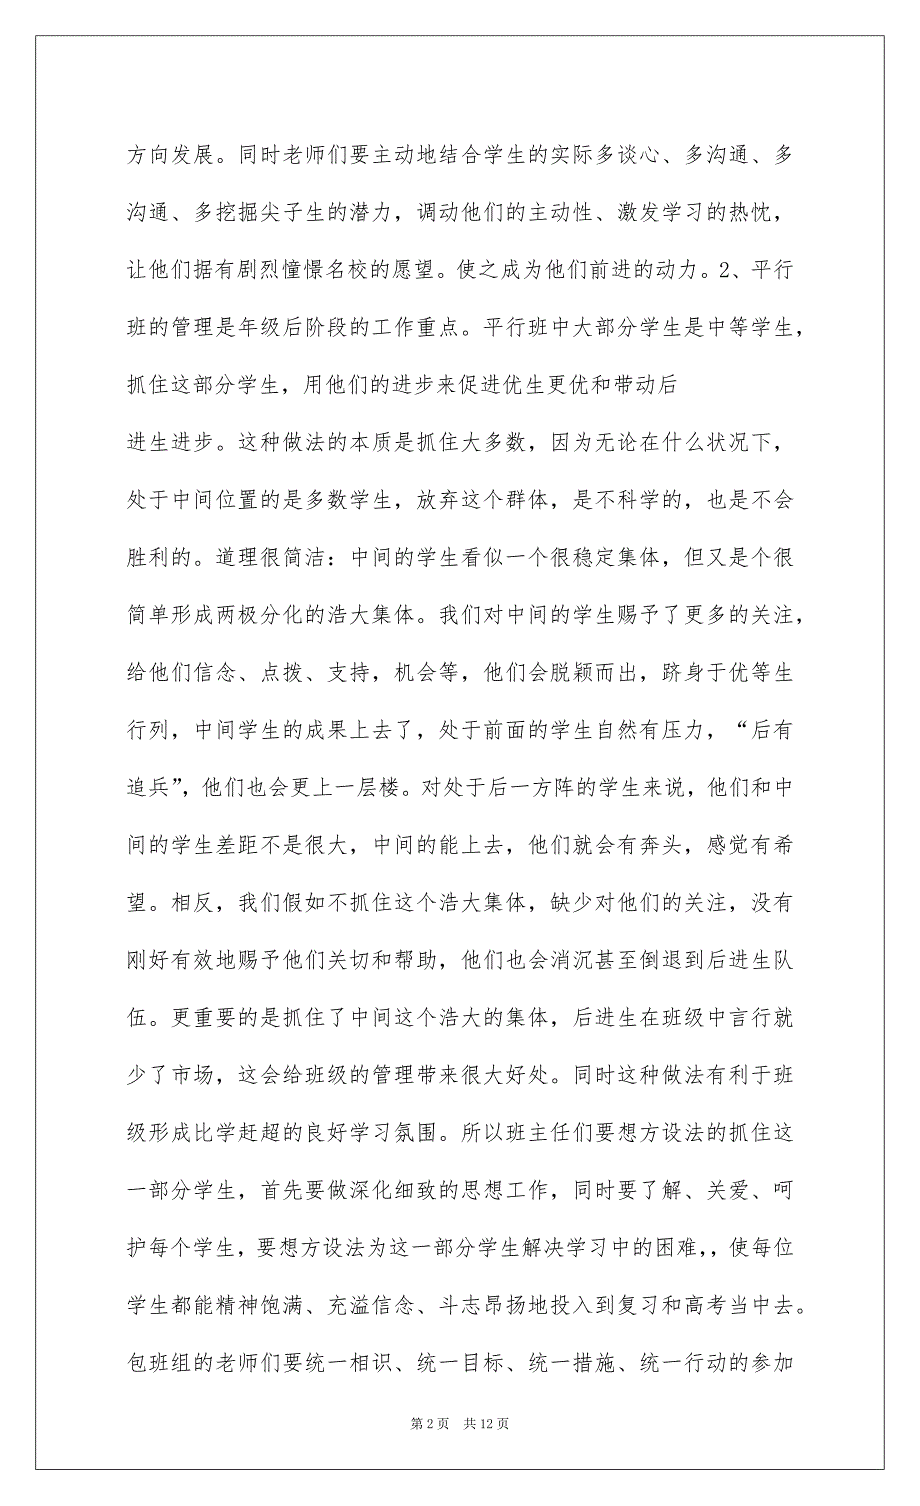 方向发展。同时老师们要主动地结合学生的实际多谈心、多沟通、多
沟通、多挖掘尖子生的潜力，调动他们的主动性、激发学习的热忱，
让他们据有剧烈憧憬名校的愿望。使之成为他们前进的动力。2、平行
班的管理是年级后阶段的工作重点。平行班中大部分学生是中等学生，
抓住这部分学生，用他们的进步来促进优生更优和带动后
进生进步。这种做法的本质是抓住大多数，因为无论在什么状况下，
处于中间位置的是多数学生，放弃这个群体，是不科学的，也是不会
胜利的。道理很简洁：中间的学生看似一个很稳定集体，但又是个很
简单形成两极分化的浩大集体。我们对中间的学生赐予了更多的关注，
给他们信念、点拨、支持，机会等，他们会脱颖而出，跻身于优等生
行列，中间学生的成果上去了，处于前面的学生自然有压力，“后有
追兵”，他们也会更上一层楼。对处于后一方阵的学生来说，他们和中
间的学生差距不是很大，中间的能上去，他们就会有奔头，感觉有希
望。相反，我们假如不抓住这个浩大集体，缺少对他们的关注，没有
刚好有效地赐予他们关切和帮助，他们也会消沉甚至倒退到后进生队
伍。更重要的是抓住了中间这个浩大的集体，后进生在班级中言行就
少了市场，这会给班级的管理带来很大好处。同时这种做法有利于班
级形成比学赶超的良好学习氛围。所以班主任们要想方设法的抓住这
一部分学生，首先要做深化细致的思想工作，同时要了解、关爱、呵
护每个学生，要想方设法为这一部分学生解决学习中的困难，，使每位
学生都能精神饱满、充溢信念、斗志昂扬地投入到复习和高考当中去。
包班组的老师们要统一相识、统一目标、统一措施、统一行动的参加
第 2 页 共 12 页